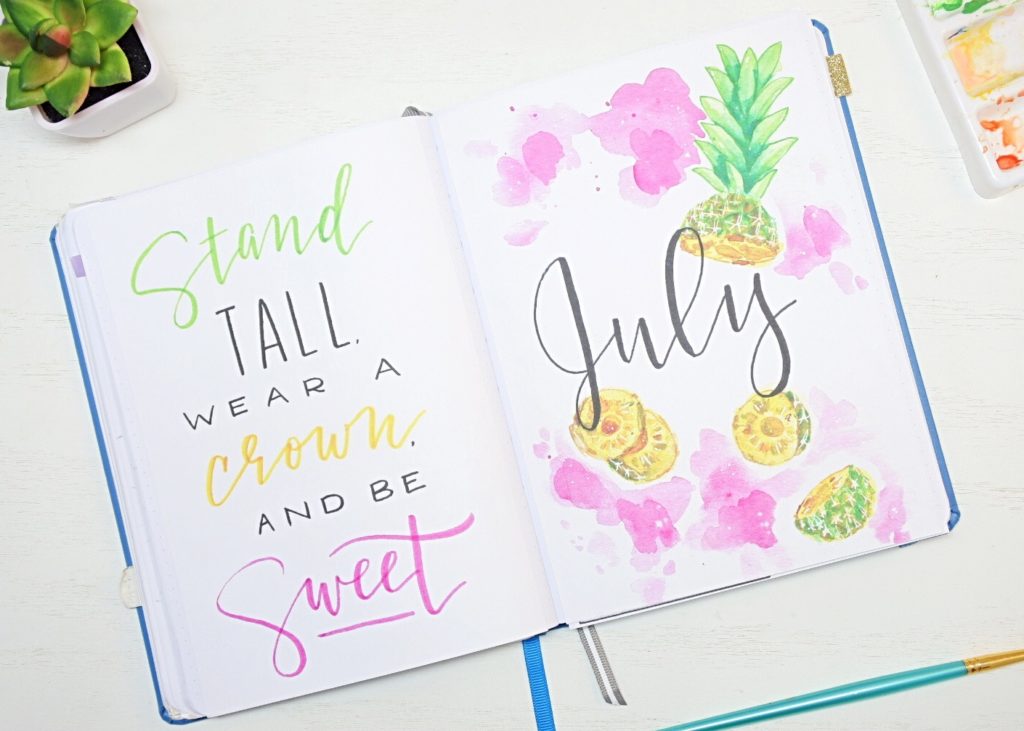 Stand
TALL,
WEAR A
crown,
AND BE
Sweet
July